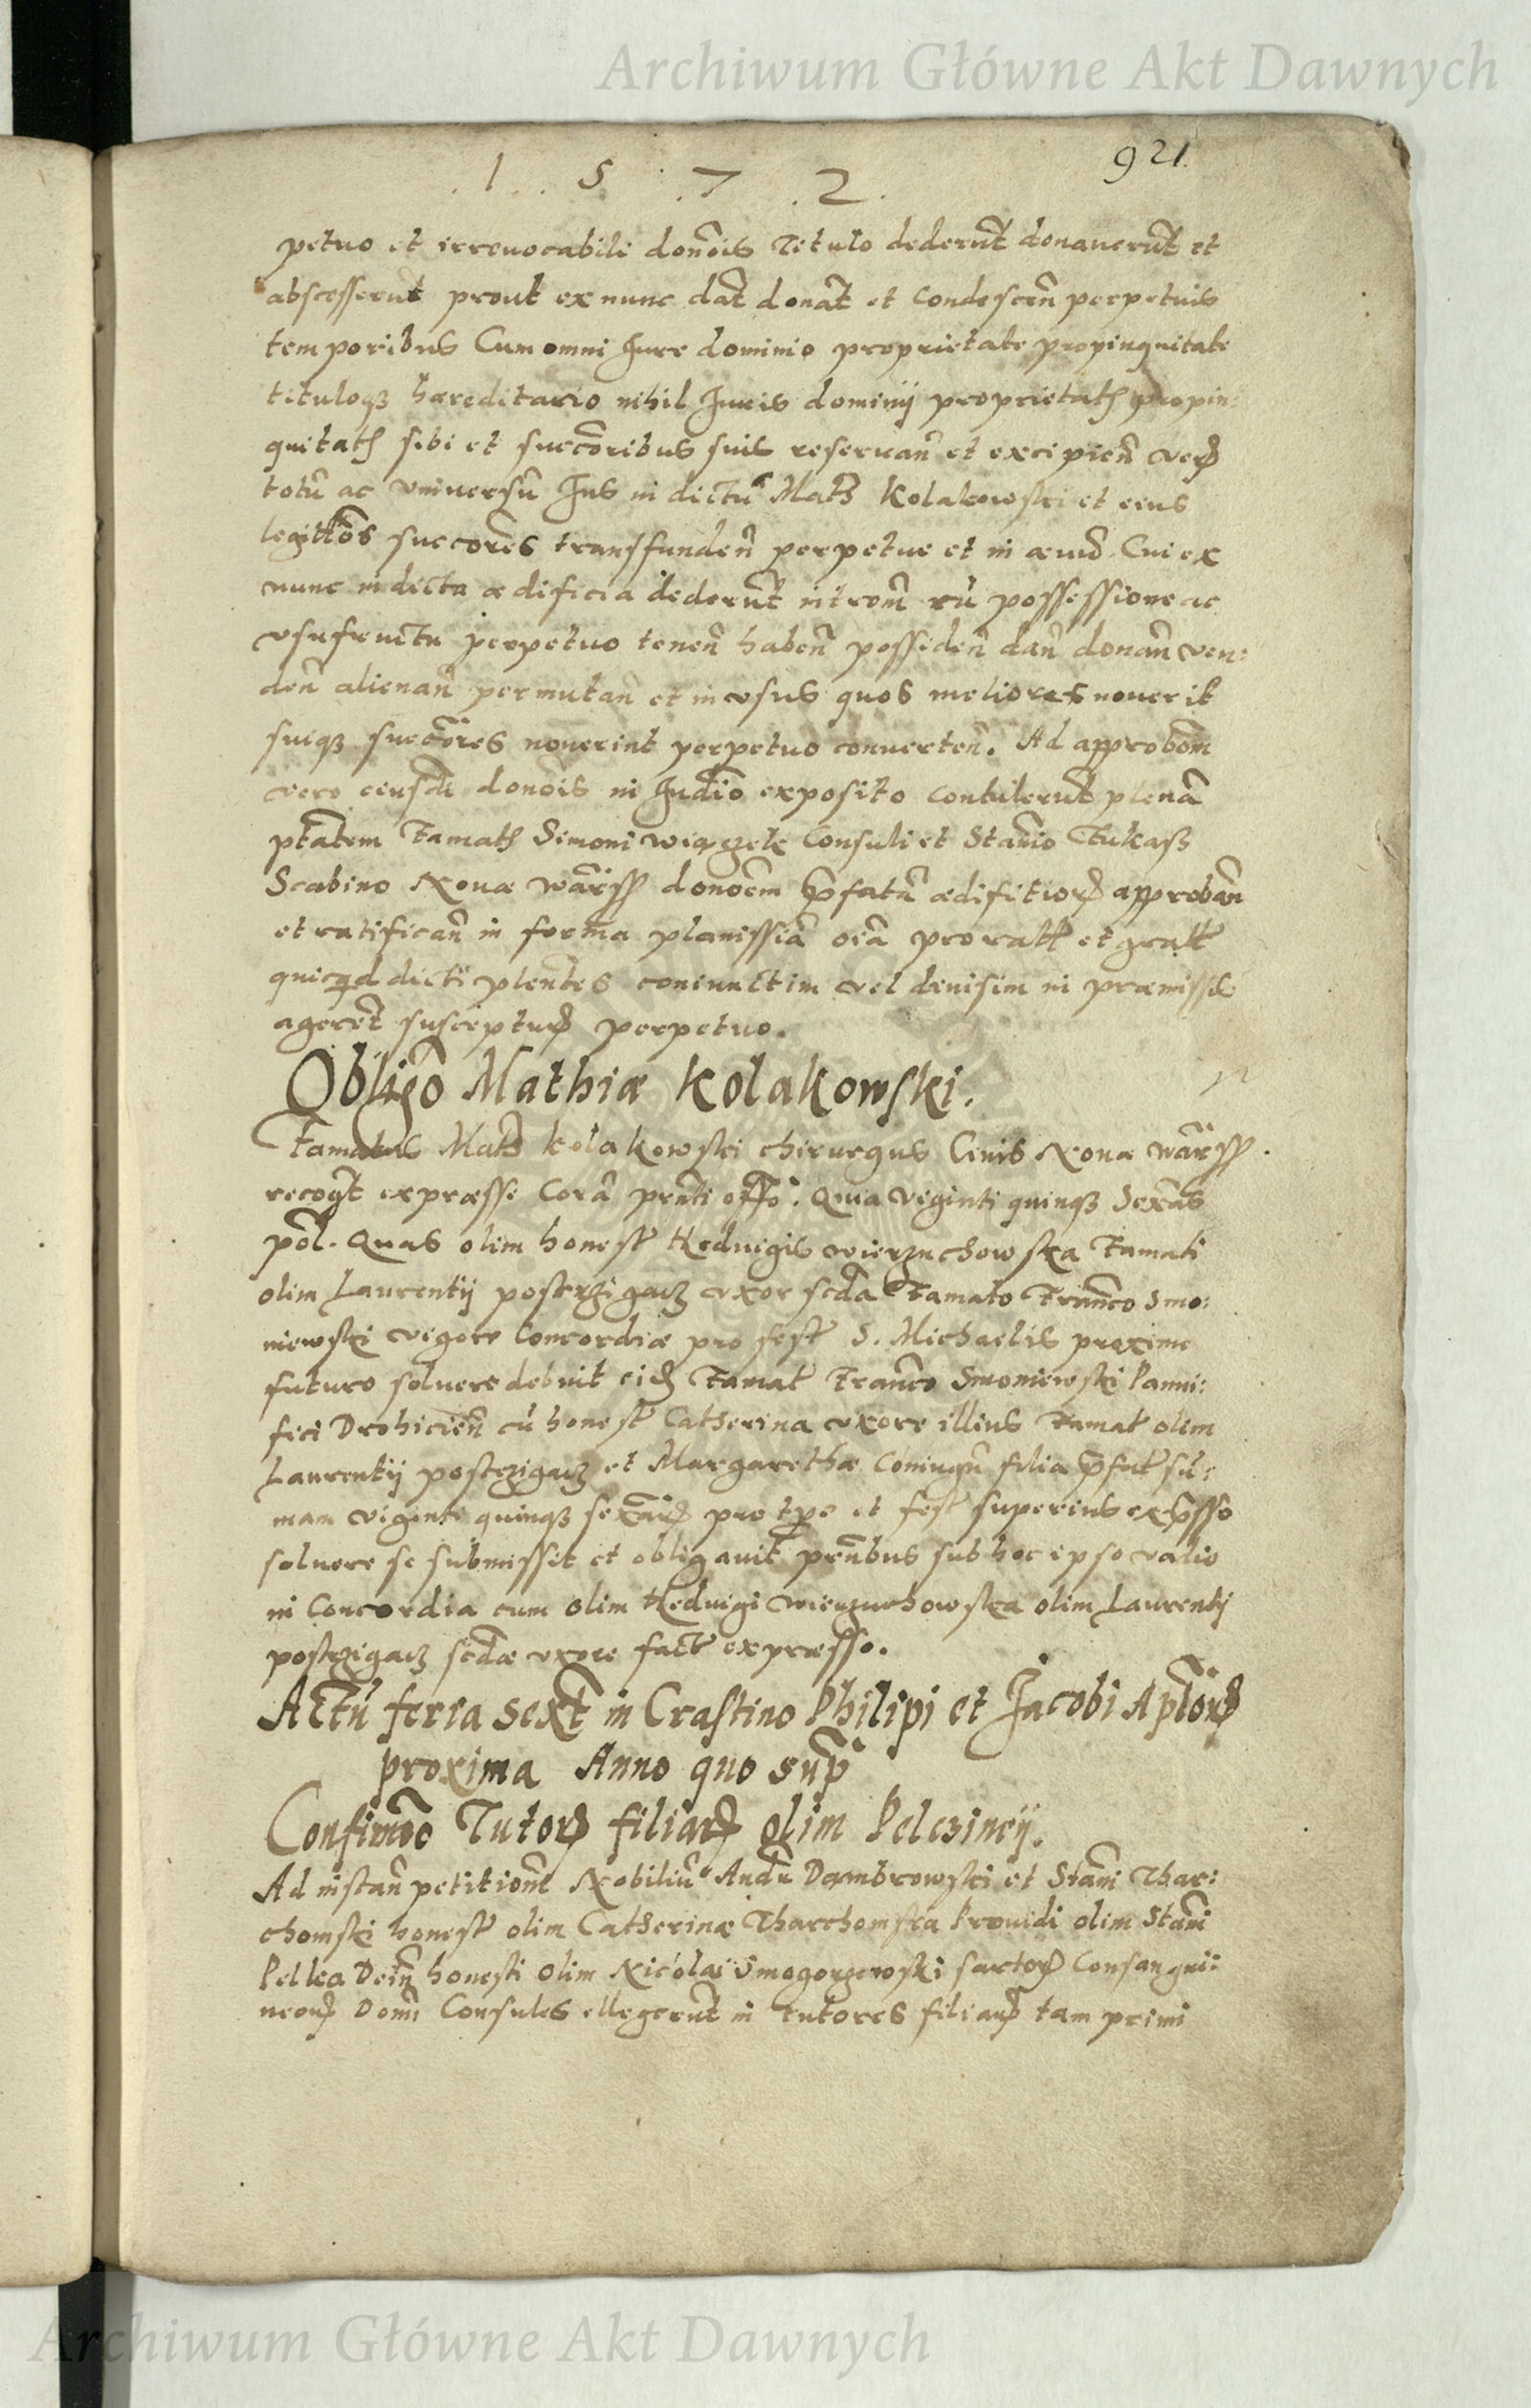 Archiwum Główne Akt Dawnych
921
1 5 7 2
petuo et irreuocabili donōis Titulo dederūt donauerūt et
abscesserūt prout ex nunc dāt donāt et Condescen̄ perpetuis
temporibus Cum omni Jure dominio proprietate propinquitate
tituloqꝫ hæreditario nihil Juris dominij proprietatꝭ propin:
quitatꝭ sibi et succōribus suis reseruan̄ et excipien̄ verꝫ
totū ac vniuersū Jus in dictū Matꝫ Kolakowski et eius
legitt̄os succōres transfunden̄ perpetue et in æuū. Cui ex
nunc in dicta ædificia dederūt intrōm cū possessione ac
vsufructu perpetuo tenen̄ haben̄ possiden̄ dan̄ donan̄ ven:
den̄ alienan̄ permutan̄ et in vsus quos meliores nouerit
suiqꝫ succōres nouerint perpetuo conuerten̄. Ad approbōm
vero eiusdē donōis in Judīo exposito contulerūt plenā
ptātem Famatꝭ Simoni Consuli et Stānio Lukasz
Scabino Nouæ Wārss donōem p̄fatā ædifitiorꝫ approban̄
et ratifican̄ in forma planissiā oīa pro ratt̄ et gratt̄
quicqd dicti plentes coniunctim vel diuisim in præmissis
agerēt suscepturꝫ perpetuo.
Obligō Mathiæ Kolakowski.
Famatus Matꝫ Kolakowski chirurgus Ciuis Nouæ Wārss.
recogt̄ expræsse Corā prn̄ti offō. Quia Viginti quinqꝫ Sexās
pōl. Quas olim honest̄ Heduigis Wierzuchowska Famati
olim Laurentij postrzigacz vxor scda Famato Frānco Smo:
niewski vigore Concordiæ pro fest̄ S. Michaelis proxime
futuro soluere debuit eidꝫ Famat̄ Frānco Smoniewski Panni:
fici Drohicien̄ cū honest̄ Catherina vxore illius Famat̄ olim
Laurentij postrzigacz et Margarethæ Coniugū filia p̄fat̄ sū:
mam viginti quinqꝫ sexārꝫ pro tpe et fest̄ superius exp̄sso
soluere se submissit et obligauit prn̄tibus sub hoc ipso vadio
in Concordia cum olim Heduigi Wierzuchowska olim Laurentij
postrzigacz scdæ vxore fact̄ expræsso.
Actū feria Sext̄ in Crastino Philipi et Jacobi Apl̄orꝫ
proxima Anno quo sup̄
Confirmō Tutorꝫ filiarꝫ olim Pelczinej.
Ad instan̄ petitionē Nobiliū Andꝫ Dambrowski et Stāni Thar:
chomski honest̄ olim Catherinæ Tharchomska Prouidi olim Stāni
Pelka Dein̄ honesti olim Nicolai Smogorzewski sartorꝫ Consangui:
neorꝫ Domī Consules ellegerūt in tutores filiarꝫ tam primi
Archiwum Główne Akt Dawnych